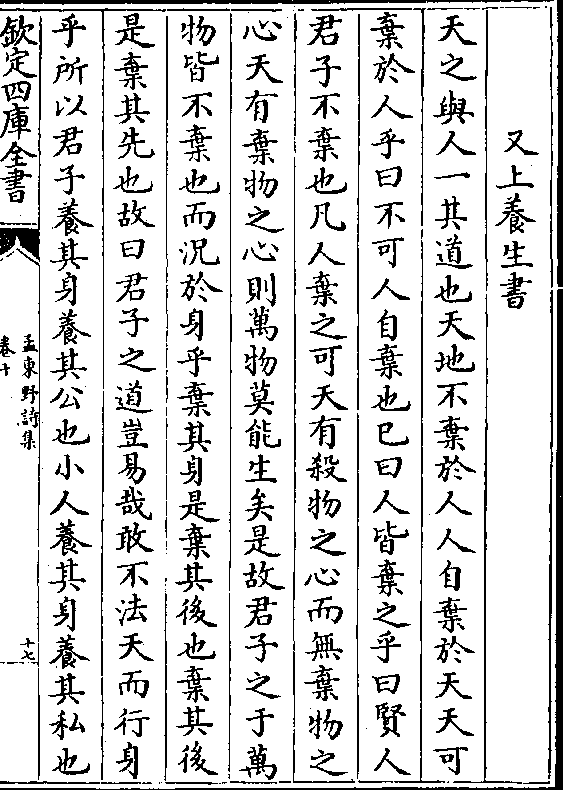 又上養生書
天之與人一其道也天地不棄於人人自棄於天天可
棄於人乎曰不可人自棄也已曰人皆棄之乎曰賢人
君子不棄也凡人棄之可天有殺物之心而無棄物之
心天有棄物之心則萬物莫能生矣是故君子之于萬
物皆不棄也而況於身乎棄其身是棄其後也棄其後
是棄其先也故曰君子之道豈易哉敢不法天而行身
乎所以君子養其身養其公也小人養其身養其私也
欽定四庫全書
孟東野詩集
卷十
十七